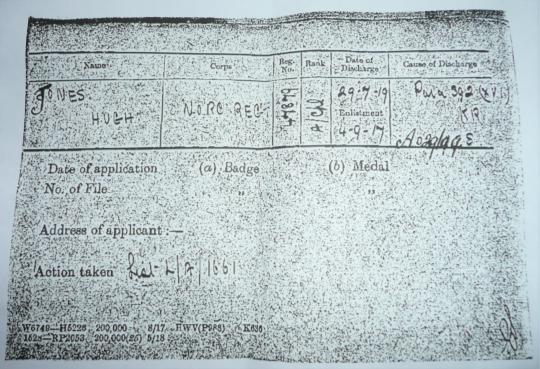 Name Corps Reg. No. Rank Date of Discharge Cause of Discharge
JONES
HUGH
NORF. REG.
47879
A/Cpl
29.7.19
Enlistment
4-9-17
Para 392 (XVI)
KR
Date of application (a) Badge (b) Medal
No. of File „ „
Address of applicant :—
Action taken List L/A/1661
W6749—H5228 200,000 8/17 HWV(P988) K636
1528—RP2053 200,000(25) 5/18